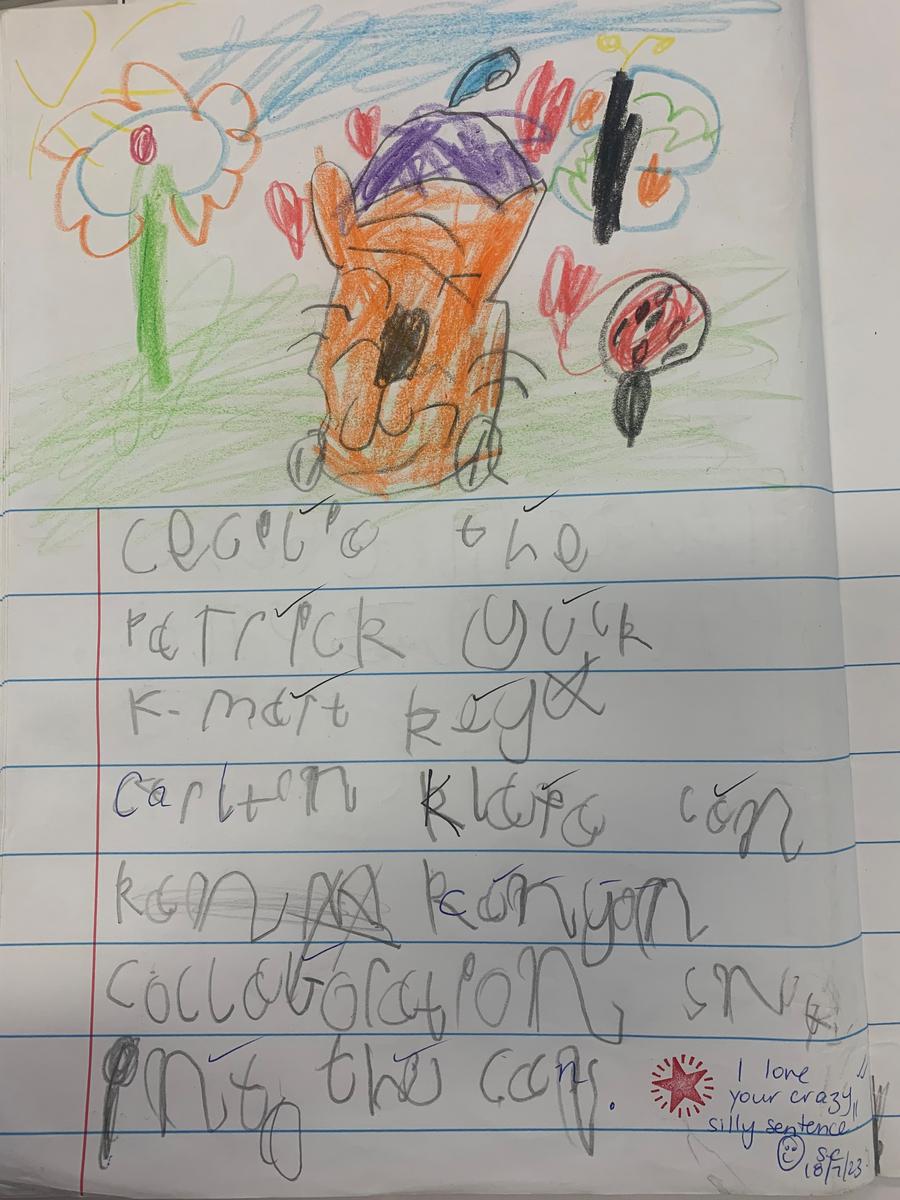 cecilia the
patrick quick
k-mart key
Carlton klara can
kanyon
collaboration, snk
into the can.
I love
your crazy,
silly sentence
sc
18/7/23